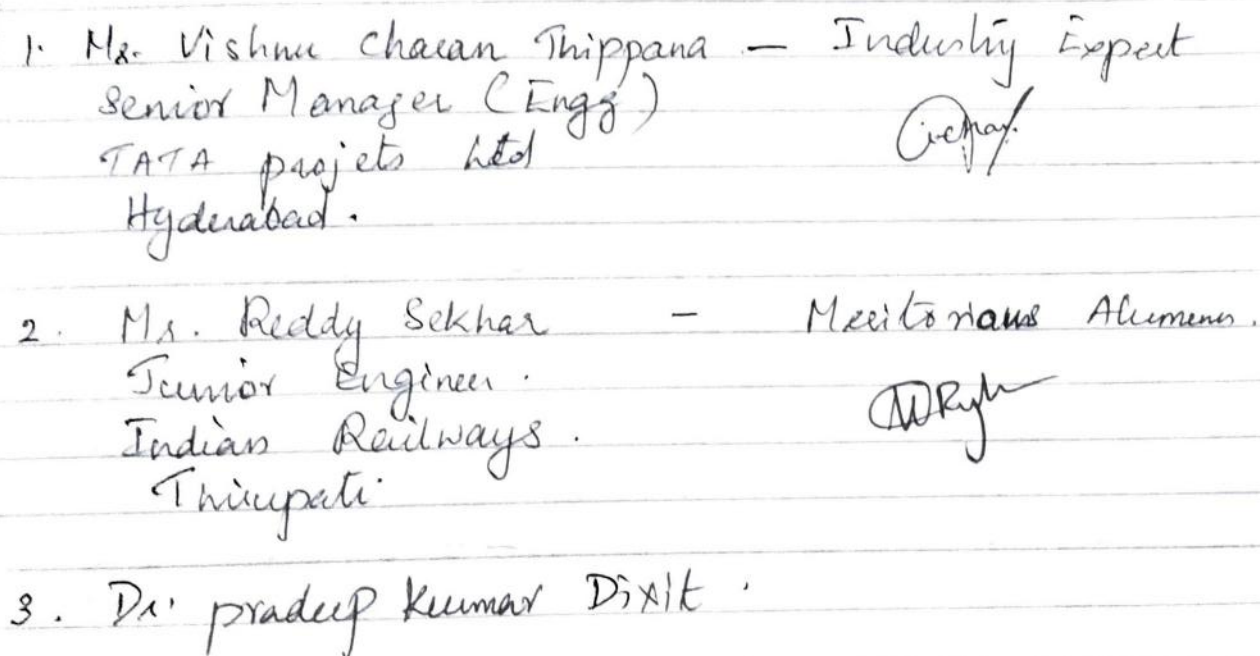 1. Mr. Vishnu Charan Thippana — Industry Expert
Senior Manager (Engg)
TATA projets Ltd
Hyderabad.
2. Mr. Reddy Sekhar - Meritorious Alumenus.
Junior Engineer.
Indian Railways.
Thirupati.
3. Dr. pradeep Kumar Dixit.